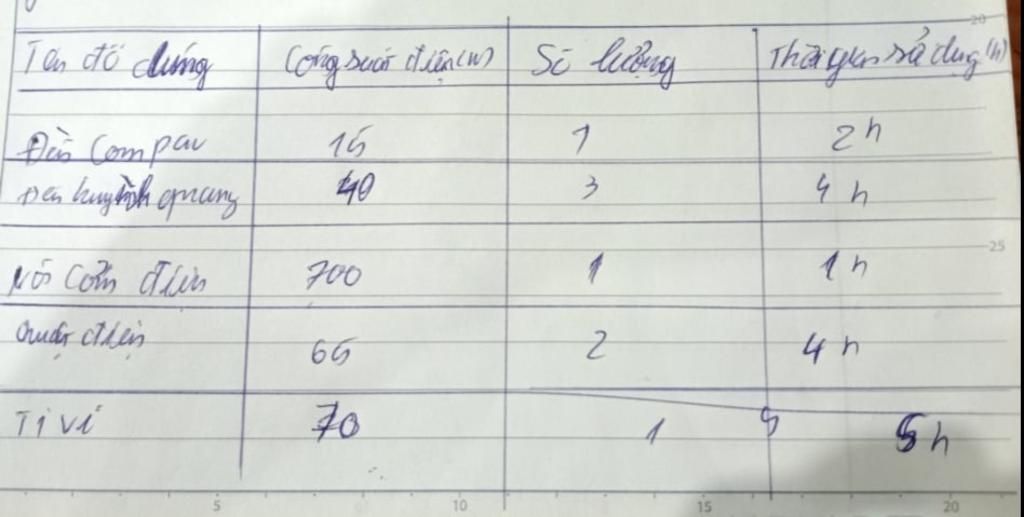 20
Tên đồ dùng Công suất điện (W) Số lượng Thời gian sử dụng (h)
Đèn Compac 15 1 2 h
Đèn huỳnh quang 40 3 4 h
25
Nồi Cơm điện 700 1 1 h
Quạt điện 65 2 4 h
Ti vi 70 1 5 h
5 10 15 20